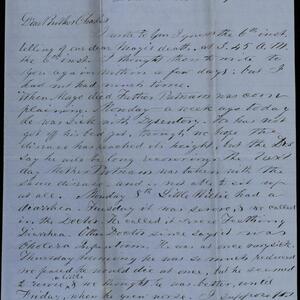 Dear Brother Charles
I wrote to you I guess the 6th inst.
telling of our dear Mary's death, at 3.45 A.M.
the 6th inst. I thought then to write to
you again within a few days; but I
had not had much time.
When Mary died Father Putnam was com
plaining; Monday a week ago today
he was sick with Dysentery. He has not
got off his bed yet, though we hope the
disease has reached its height, but the Drs
say he will be long recovering. The next
day Mother Putnam was taken with the
same disease, and is not able to sit up
at all. Monday 8th Little Willie had a
diarrhea. Tuesday it was worse, & we called
in the Doctor. He called it from Teething
Diarrhea. Other Doctors since say it was
Cholera Infantum. He was at once very sick.
Thursday morning he was so much reduced
we feared he would die at once, but he seemed
to revive, & we thought he was better, until
Friday, when he grew worse.